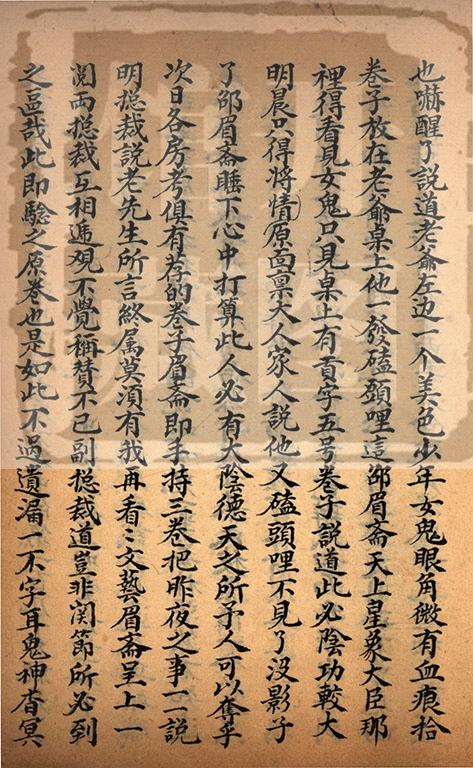 也嚇醒了說道老爺左边一个美色少年女鬼眼角微有血痕拾
卷子放在老爺桌上他一發磕頭哩這邵眉斋天上星象大臣那
裡得看見女鬼只見桌上有貢字五号卷子說道此必陰功較大
明晨只得將情原面禀大人家人説他又磕頭哩不見了没影子
了邵眉斋睡下心中打算此人必有大陰德天之所予人可以奪乎
次日各房考俱有荐的卷子眉斋即手持三卷把昨夜之事一一説
明総裁説老先生所言終属莫湏有我再看〻文藝眉斋呈上一
閱両総裁互相逓观不覺稱賛不已副総裁道豈非関節所必到
之區哉此即騐之原卷也是如此不過遺漏一不字耳鬼神杳冥